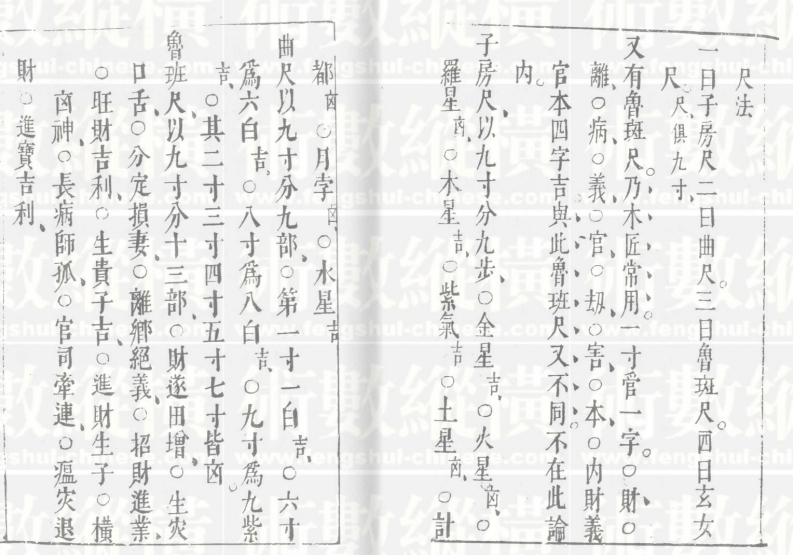 尺法
一曰子房尺二曰曲尺。三曰魯班尺。四曰玄女
尺。尺俱九寸、
又有魯班尺。乃木匠常用。一寸管一字。○財、○
離○病、○義、○官○刼○害、○本、○內財義
官本四字吉與此魯班尺又不同不在此論
內。
子房尺、以九寸分九步、○金星吉、○火星凶、○
羅星凶、○木星吉、○紫氣吉○土星凶、○計
都凶○月孛凶○水星吉
曲尺以九寸分九部○第一寸一白吉、○六寸
爲六白吉、○八寸爲八白吉、○九寸爲九紫
吉、○其二寸三寸四寸五寸七寸皆凶。
魯班尺、以九寸分十三部、○財遂田增、○生灾
口舌○分定損妻、○離鄉絕義、○招財進業、
○旺財吉利、○生貴子吉、○進財生子○橫
凶神、○長病師孤、○官司牽連、○瘟灾退
財○進寶吉利、